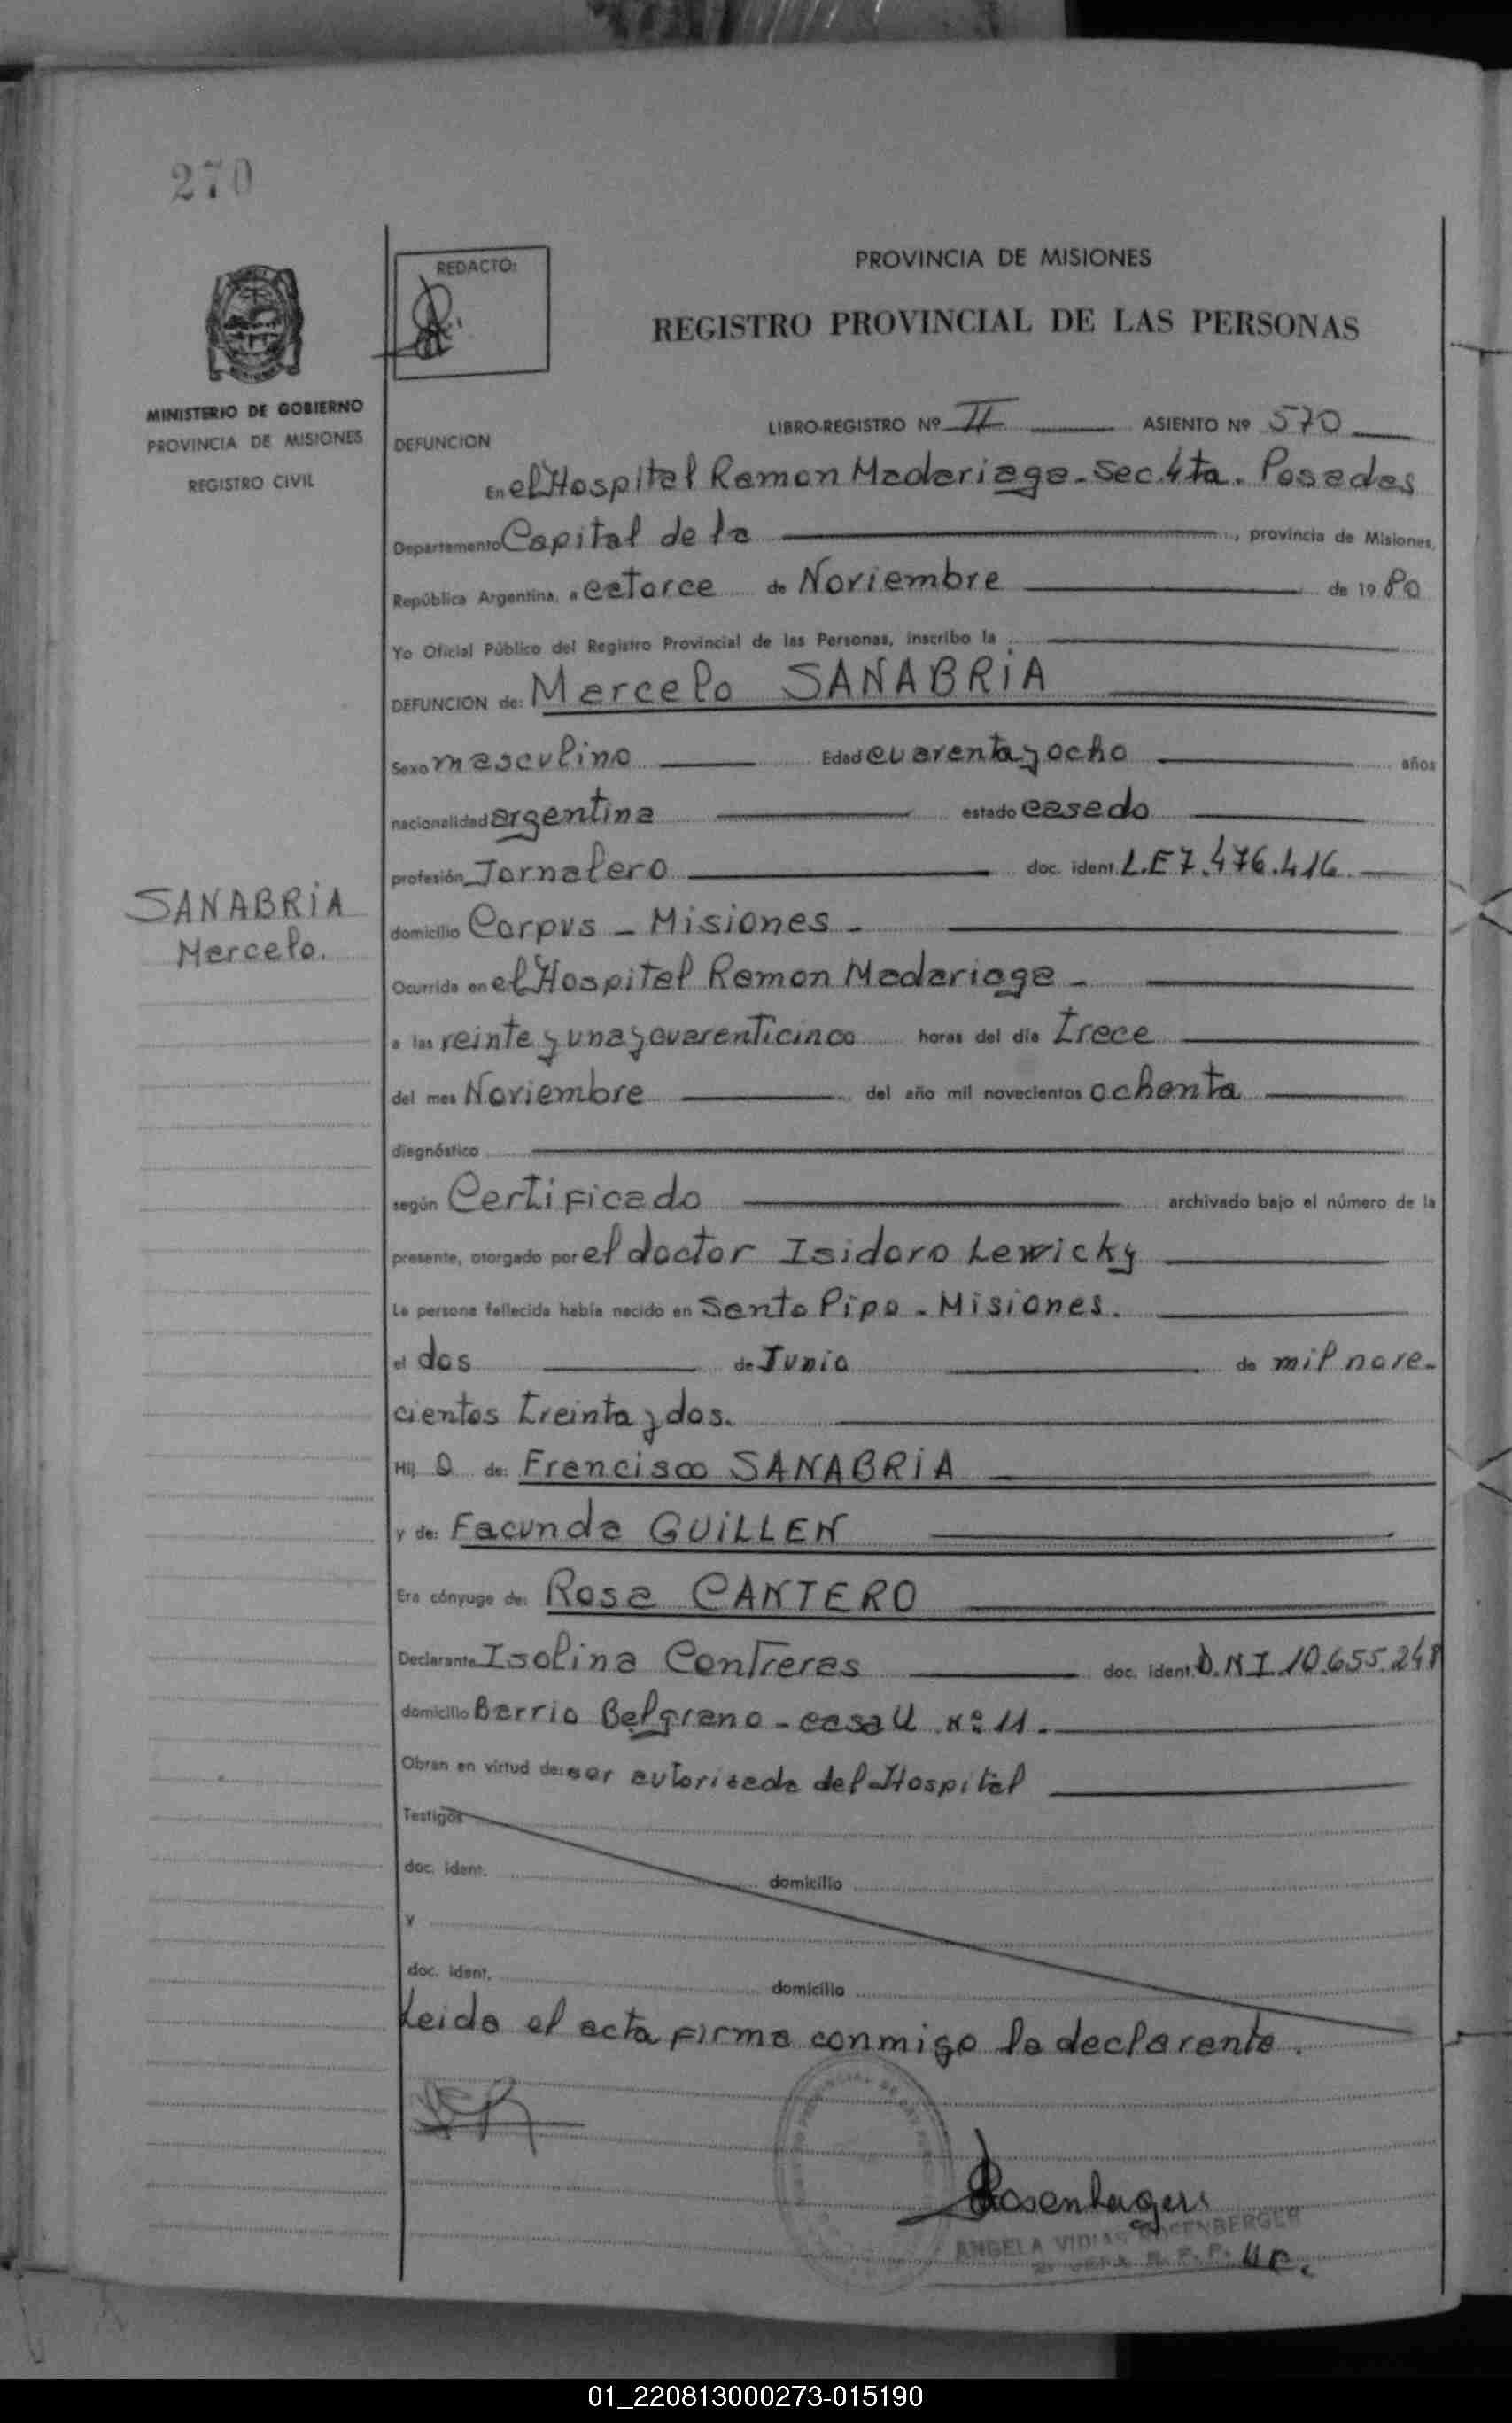 270
REDACTO:
PROVINCIA DE MISIONES
REGISTRO PROVINCIAL DE LAS PERSONAS
MINISTERIO DE GOBIERNO
PROVINCIA DE MISIONES
REGISTRO CIVIL
LIBRO-REGISTRO Nº II ASIENTO Nº 570
DEFUNCION
En el Hospital Ramon Madariaga - Sec. 4ta. Posadas
Departamento Capital de la , provincia de Misiones,
República Argentina, a catorce de Noviembre de 1980
Yo Oficial Público del Registro Provincial de las Personas, inscribo la
DEFUNCION de: Marcelo SANABRIA
Sexo masculino Edad cuarenta y ocho años
nacionalidad argentina estado casado
profesión Jornalero doc. ident. L.E 7.476.416
SANABRIA
Marcelo.
domicilio Corpus - Misiones -
Ocurrida en el Hospital Ramon Madariaga -
a las veinte y una y cuarenticinco horas del día trece
del mes Noviembre del año mil novecientos ochenta
diagnóstico
según Certificado archivado bajo el número de la
presente, otorgado por el doctor Isidoro Lewicky
La persona fallecida había nacido en Santo Pipo - Misiones.
el dos de Junio de mil nove-
cientos treinta y dos.
Hij o de: Francisco SANABRIA
y de: Facunda GUILLEN
Era cónyuge de: Rosa CANTERO
Declarante Isolina Contreras doc. ident. D.N.I. 10.655.248
domicilio Barrio Belgrano - casa U Nº 11.
Obran en virtud de: ser autorisada del Hospital
Testigos
doc. ident. domicilio
y
doc. ident. domicilio
Leida el acta firma conmigo la declarante.
ANGELA ROSENBERGER
01_220813000273-015190